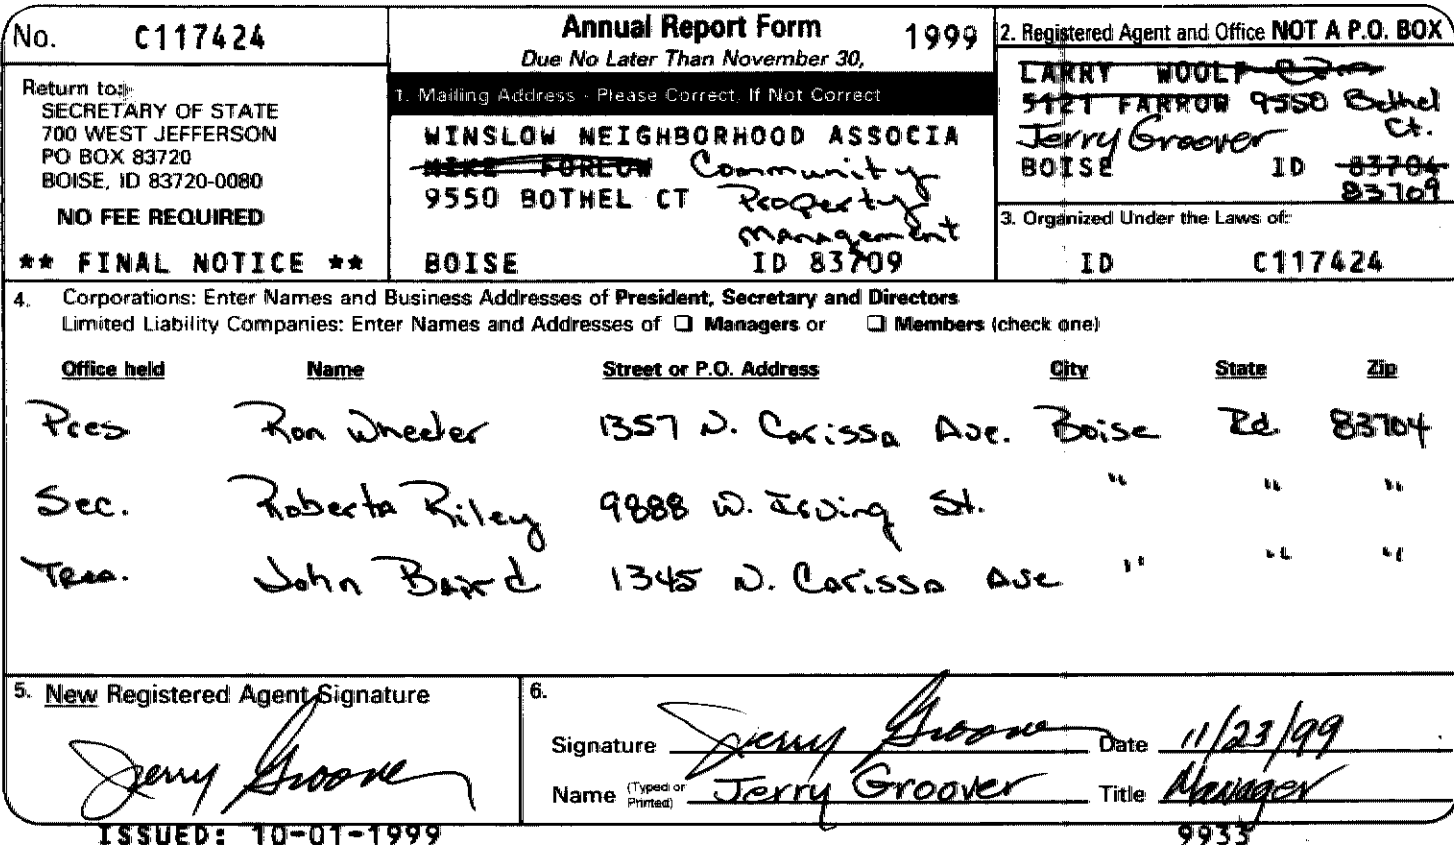 No. C117424
Return to:
SECRETARY OF STATE
700 WEST JEFFERSON
PO BOX 83720
BOISE, ID 83720-0080
NO FEE REQUIRED
** FINAL NOTICE **
Annual Report Form 1999
Due No Later Than November 30,
1. Mailing Address - Please Correct, If Not Correct
WINSLOW NEIGHBORHOOD ASSOCIA
Community
9550 BOTHEL CT Property
Management
BOISE ID 83709
2. Registered Agent and Office NOT A P.O. BOX
LARRY WOOLF
5121 FARROW 9550 Bethel
Jerry Groover Ct.
BOISE ID 83704
83709
3. Organized Under the Laws of:
ID C117424
4. Corporations: Enter Names and Business Addresses of President, Secretary and Directors
Limited Liability Companies: Enter Names and Addresses of ☐ Managers or ☐ Members (check one)
Office held Name Street or P.O. Address City State Zip
Pres Ron Wheeler 1357 N. Carissa Ave. Boise Id. 83704
Sec. Roberta Riley 9888 W. Irving St. " " "
Trea. John Baird 1345 N. Carissa Ave " " "
5. New Registered Agent Signature
Jerry Groover
6.
Signature Jerry Groover Date 11/23/99
Name (Typed or Printed) Jerry Groover Title Manager
ISSUED: 10-01-1999 9933